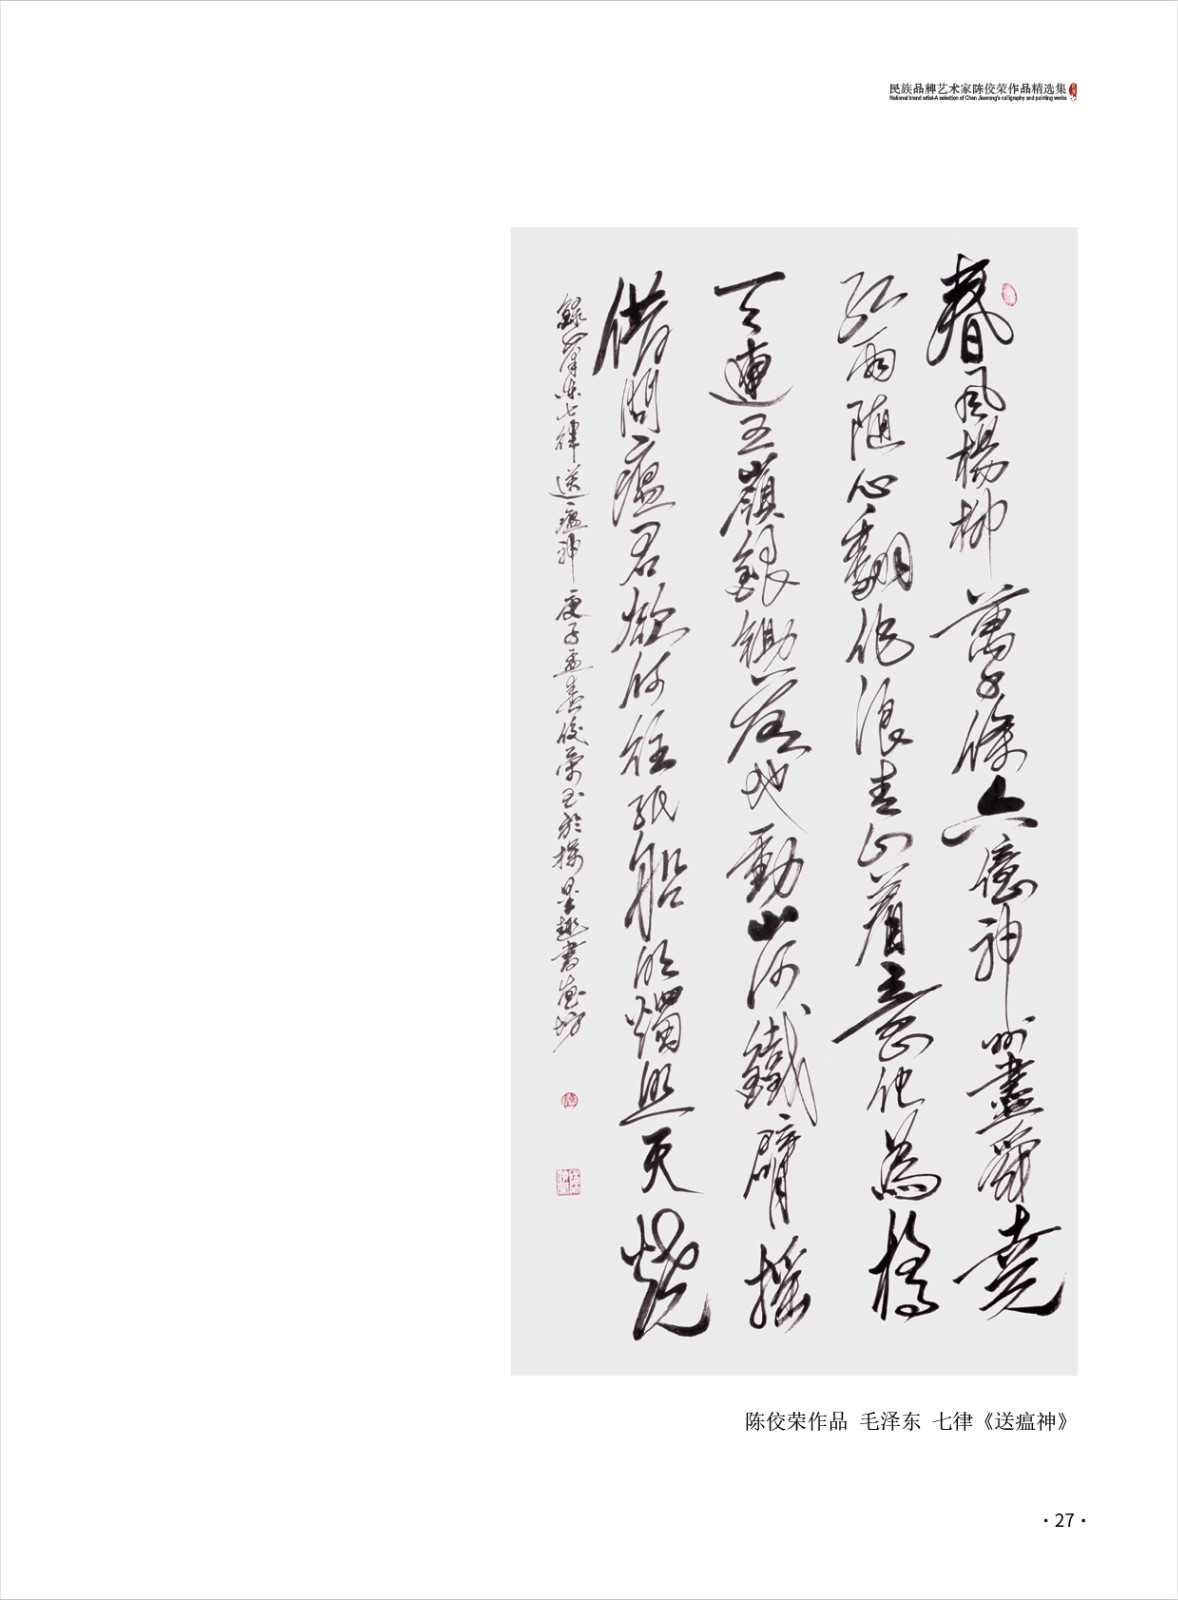 民族品牌艺术家陈佼荣作品精选集
National brand artist-A selection of Chen Jiaorong's calligraphy and painting works
春風楊柳萬千條六億神州盡舜堯
紅雨随心翻作浪青山着意化為橋
天連五嶺銀鋤落地動山河鐵臂摇
借問瘟君欲何往紙船明燭照天燒
錄澤东七律送瘟神庚子孟春佼荣书於墨趣書画坊
陈佼荣作品 毛泽东 七律《送瘟神》
·27·